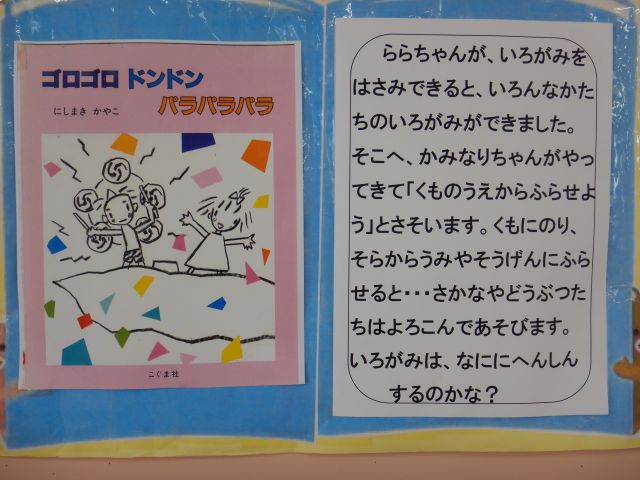 ゴロゴロ ドンドン
パラパラパラ
にしまき かやこ
こぐま社
ららちゃんが、いろがみを
はさみできると、いろんなかた
ちのいろがみができました。
そこへ、かみなりちゃんがやっ
てきて「くものうえからふらせよ
う」とさそいます。くもにのり、
そらからうみやそうげんにふら
せると・・・さかなやどうぶつた
ちはよろこんであそびます。
いろがみは、なににへんしん
するのかな？